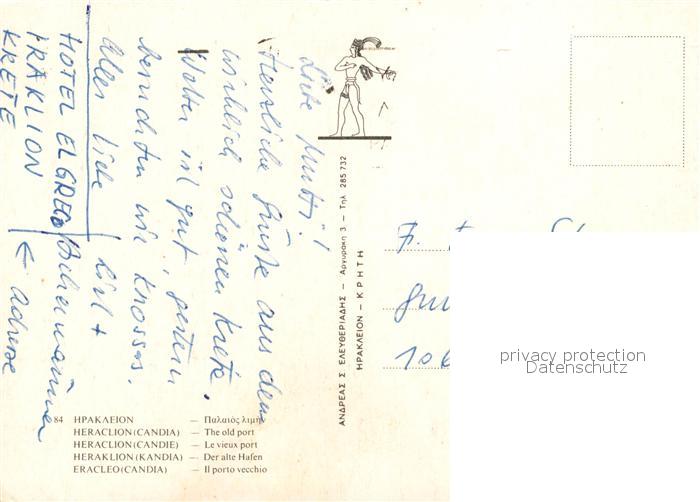 Liebe Mutti!
Herzliche Grüße aus dem
wirklich schönen Kreta.
Wetter ist gut, gestern
besichten wir Knossos.
Alles Liebe
HOTEL EL GRECO
IRAKLION
KRETE
← Adresse
ΑΝΔΡΕΑΣ Σ. ΕΛΕΥΘΕΡΙΑΔΗΣ — Αργυράκη 3 — Τηλ. 285 732
ΗΡΑΚΛΕΙΟΝ - ΚΡΗΤΗ
F.
10
privacy protection
Datenschutz
84 ΗΡΑΚΛΕΙΟΝ — Παλαιός λιμήν
HERACLION (CANDIA) — The old port
HERACLION (CANDIE) — Le vieux port
HERAKLION (KANDIA) — Der alte Hafen
ERACLEO (CANDIA) — Il porto vecchio